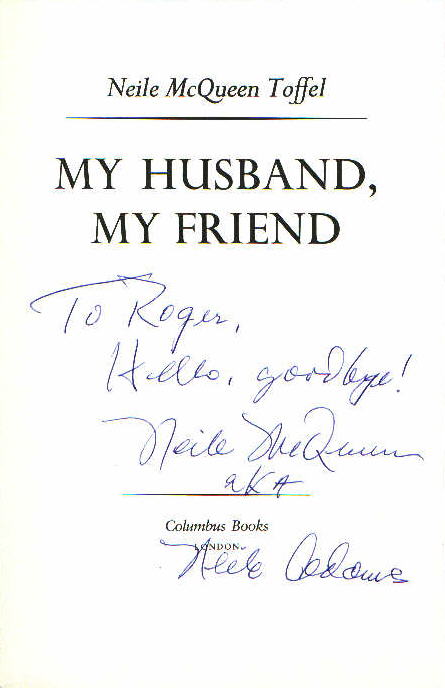 Neile McQueen Toffel
MY HUSBAND,
MY FRIEND
To Roger,
Hello, goodbye!
Neile McQueen
aKA
Columbus Books
LONDON
Neile Adams